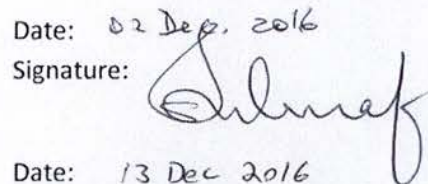 Date: 02 Dec. 2016
Signature:
Date: 13 Dec 2016